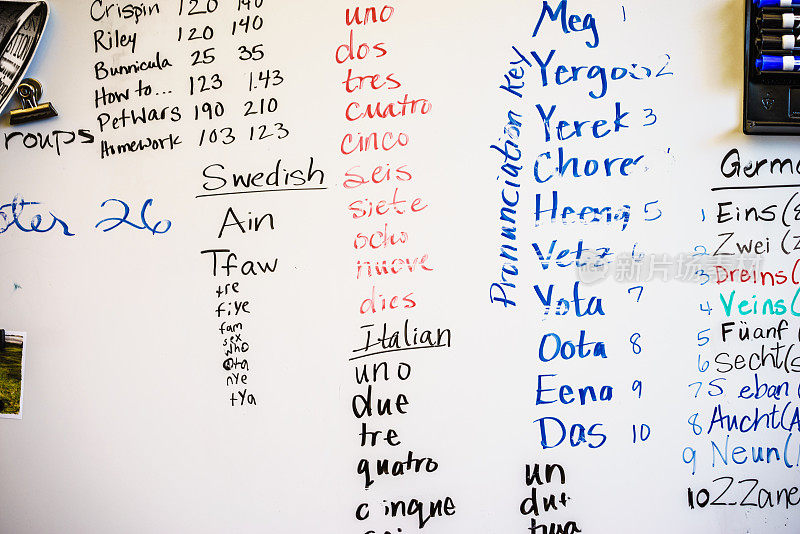 Crispin 120 140
Riley 120 140
Bunnicula 25 35
How to... 123 1.43
PetWars 190 210
Homework 103 123
roups
ter 26
Swedish
Ain
Tfaw
tre
fiye
fam
sex
who
Ota
nye
tya
uno
dos
tres
cuatro
cinco
seis
siete
ocho
nueve
dies
Italian
uno
due
tre
quatro
cinque
Pronunciation Key
Meg 1
Yergois 2
Yerek 3
Chores
Heeng 5
Vetz 6
Yota 7
Oota 8
Eena 9
Das 10
un
dut
Germa
1 Eins(
2 Zwei (
3 Dreins(
4 Veins(
5 Füanf
6 Secht(
7 Seban
8 Aucht(A
9 Neun(
10 ZZane
新片场 iStock